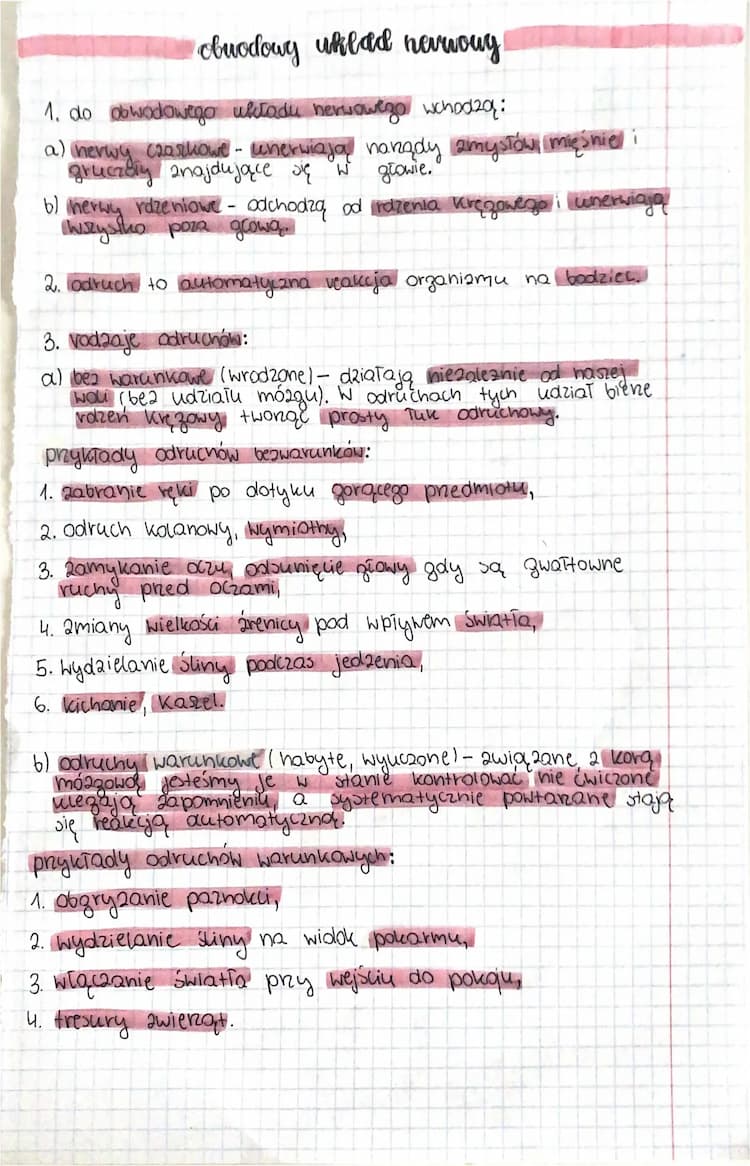 obwodowy układ nerwowy
1. do obwodowego układu nerwowego wchodzą:
a) nerwy czaszkowe - unerwiają narządy zmysłów, mięśnie i
gruczoły znajdujące się w głowie.
b) nerwy rdzeniowe - odchodzą od rdzenia kręgowego i unerwiają
wszystko poza głową.
2. odruch to automatyczna reakcja organizmu na bodziec.
3. rodzaje odruchów:
a) bez warunkowe (wrodzone) - działają niezależnie od naszej
woli (bez udziału mózgu). W odruchach tych udział bierze
rdzeń kręgowy tworząc prosty łuk odruchowy.
przykłady odruchów bezwarunków:
1. zabranie ręki po dotyku gorącego przedmiotu,
2. odruch kolanowy, wymiothy,
3. zamykanie oczu, odsunięcie głowy gdy są gwałtowne
ruchy przed oczami,
4. zmiany wielkości źrenicy pod wpływem światła,
5. wydzielanie śliny podczas jedzenia,
6. kichanie, kaszel.
b) odruchy warunkowe (nabyte, wyuczone) - związane z korą
mózgową, jesteśmy je w stanie kontrolować, nie ćwiczone
ulegają zapomnieniu, a systematycznie powtarzane stają
się reakcją automatyczną.
przykłady odruchów warunkowych:
1. obgryzanie paznokci,
2. wydzielanie śliny na widok pokarmu,
3. włączanie światła przy wejściu do pokoju,
4. tresury zwierząt.